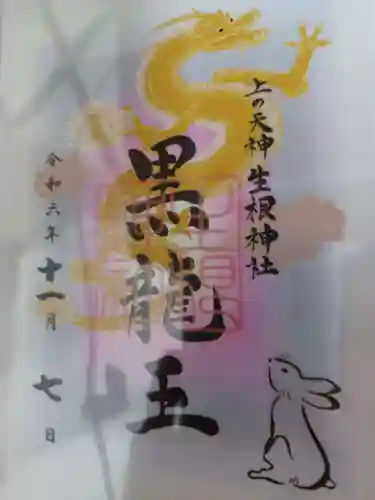 上の天神生根神社
黒龍王
令和六年十一月七日